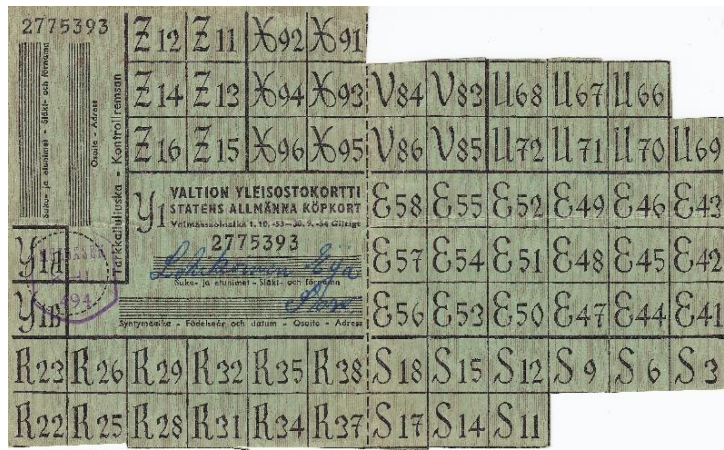 2775393
Suku- ja etunimet - Släkt- och förnamn
Osoite - Adress
Tarkkailuliuska - Kontrollremsan
Z 12 Z 11 X 92 X 91
Z 14 Z 13 X 94 X 93 V 84 V 83 U 68 U 67 U 66
Z 16 Z 15 X 96 X 95 V 86 V 85 U 72 U 71 U 70 U 69
Y1 VALTION YLEISOSTOKORTTI
STATENS ALLMÄNNA KÖPKORT
Voimassaoloaika 1. 10. -53—30. 9. -54 Giltigt
2775393
Suku- ja etunimet - Släkt- och förnamn
Syntymäaika - Födelseår och datum - Osoite - Adress
E 58 E 55 E 52 E 49 E 46 E 43
Y1a E 57 E 54 E 51 E 48 E 45 E 42
494
Y1b E 56 E 53 E 50 E 47 E 44 E 41
R 23 R 26 R 29 R 32 R 35 R 38 S 18 S 15 S 12 S 9 S 6 S 3
R 22 R 25 R 28 R 31 R 34 R 37 S 17 S 14 S 11